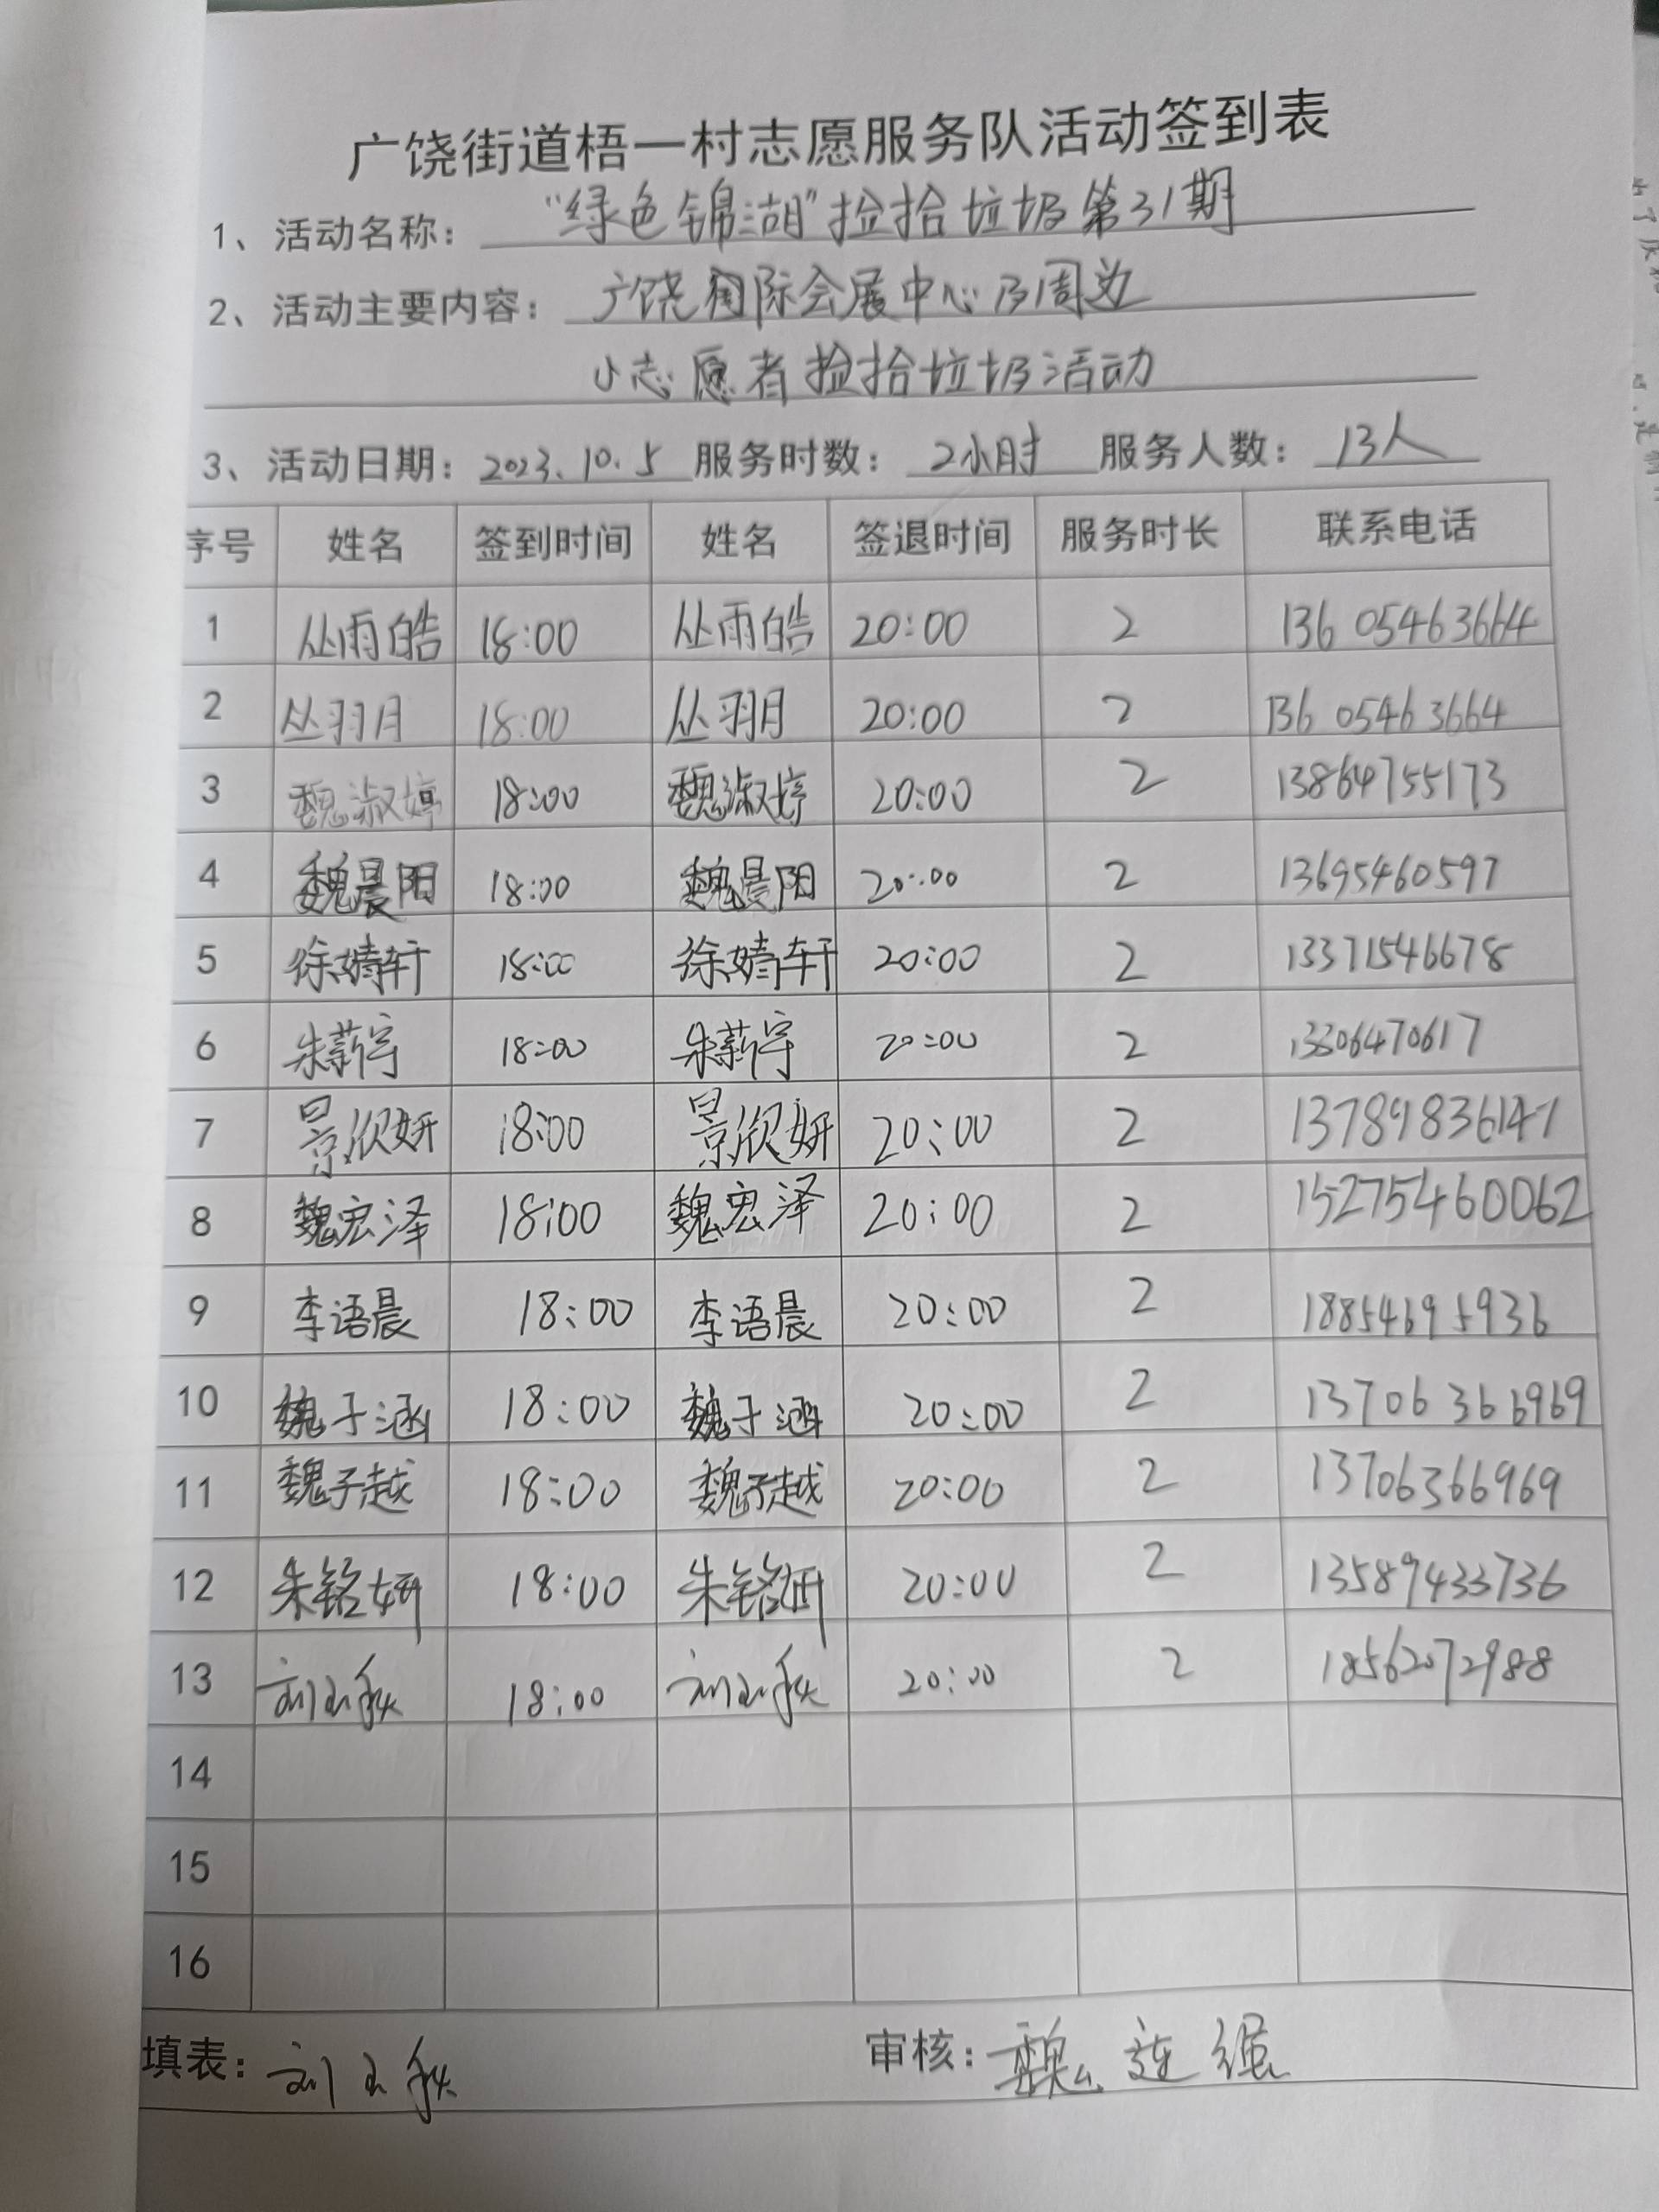 广饶街道梧一村志愿服务队活动签到表
1、活动名称：“绿色锦湖”捡拾垃圾第31期
2、活动主要内容：广饶国际会展中心及周边
小志愿者捡拾垃圾活动
3、活动日期：2023.10.5 服务时数：2小时 服务人数：13人
序号 姓名 签到时间 姓名 签退时间 服务时长 联系电话
1 丛雨皓 18:00 丛雨皓 20:00 2 13605463664
2 丛羽月 18:00 丛羽月 20:00 2 13605463664
3 魏淑婷 18:00 魏淑婷 20:00 2 13864755173
4 魏晨阳 18:00 魏晨阳 20:00 2 13695460597
5 徐婧轩 18:00 徐婧轩 20:00 2 13371546678
6 朱薪宇 18:00 朱薪宇 20:00 2 13306470617
7 景欣妍 18:00 景欣妍 20:00 2 13789836147
8 魏宏泽 18:00 魏宏泽 20:00 2 15275460062
9 李语晨 18:00 李语晨 20:00 2 18854695936
10 魏子涵 18:00 魏子涵 20:00 2 13706366969
11 魏子越 18:00 魏子越 20:00 2 13706366969
12 朱铭妍 18:00 朱铭妍 20:00 2 13589433736
13 18:00 20:00 2 18562072988
14
15
16
填表： 审核：魏连绳